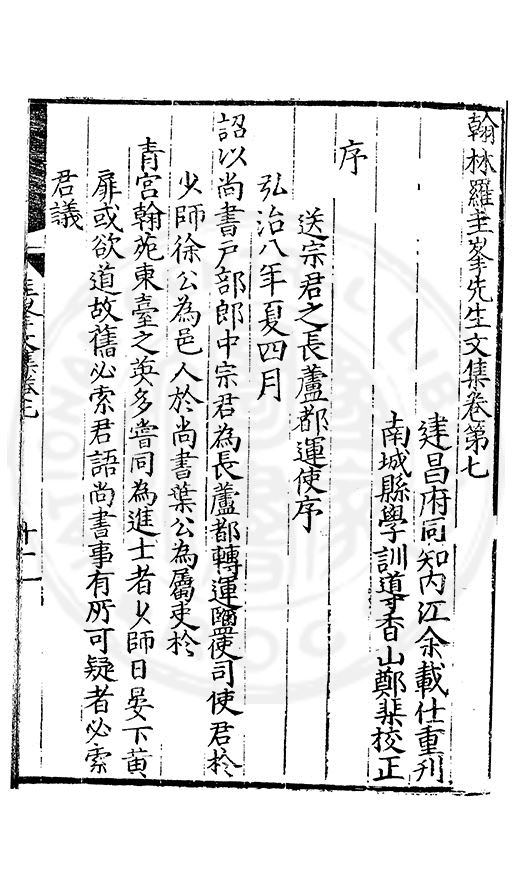 翰林羅圭峯先生文集卷第七
建昌府同知內江余載仕重刊
南城縣學訓導香山鄭棐校正
序
送宗君之長蘆都運使序
弘治八年夏四月
詔以尚書戶部郎中宗君為長蘆都轉運鹽使司使君於
少師徐公為邑人於尚書葉公為屬吏於
青宮翰苑東臺之英多嘗同為進士者少師日晏下黃
扉或欲道故舊必索君語尚書事有所可疑者必索
君議
圭峯文集卷七